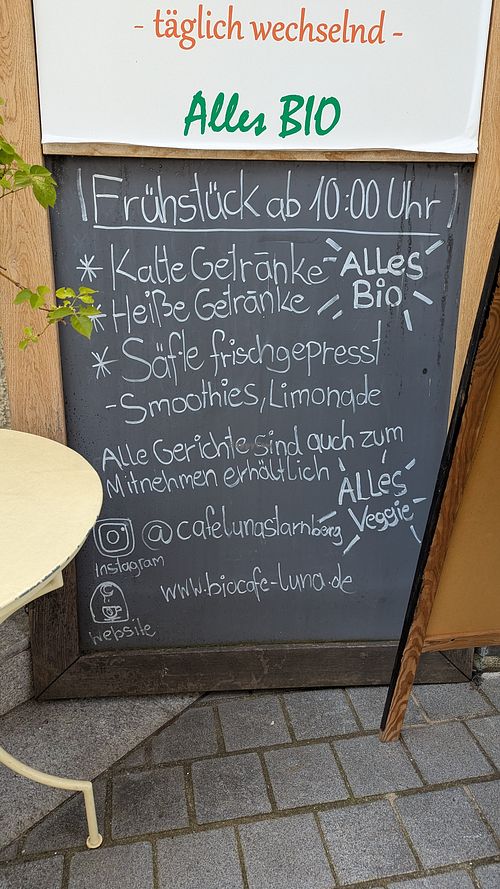 - täglich wechselnd -
Alles BIO
Frühstück ab 10:00 Uhr
* Kalte Getränke
* Heiße Getränke
Alles
Bio
* Säfte frischgepresst
- Smoothies, Limonade
Alle Gerichte sind auch zum
Mitnehmen erhältlich
Alles
Veggie
@cafelunastarnberg
Instagram
www.biocafe-luna.de
Website